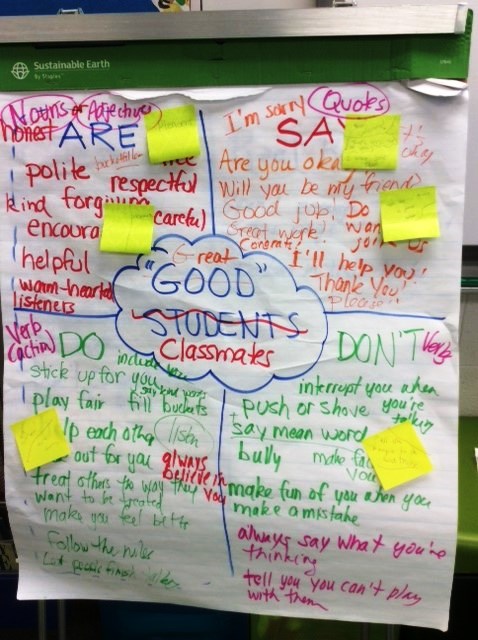 Sustainable Earth
By Staples
Nouns or Adjectives
honest ARE
bucketfiller
polite
respectful
kind forgiving
careful
encoura
helpful
warm-hearted
listeners
Quotes
I'm sorry
SA
Are you oka
Will you be my friend?
Good job! Do
Great work! wan
Congrats! join us
I'll help you!
Thank You!
Please!!
Great
"GOOD"
STUDENTS
Classmates
Verb
(action)
DO
include
stick up for you
play fair fill buckets
lp each other listen
out for you always
believe in
you
treat others the way they
want to be treated
make you feel better
Follow the rules
Let people finish
DON'T Verb
interrupt you when
you're
talking
push or shove
say mean word
bully make fac
you
make fun of you when you
make a mistake
always say what you're
thinking
tell you you can't play
with them